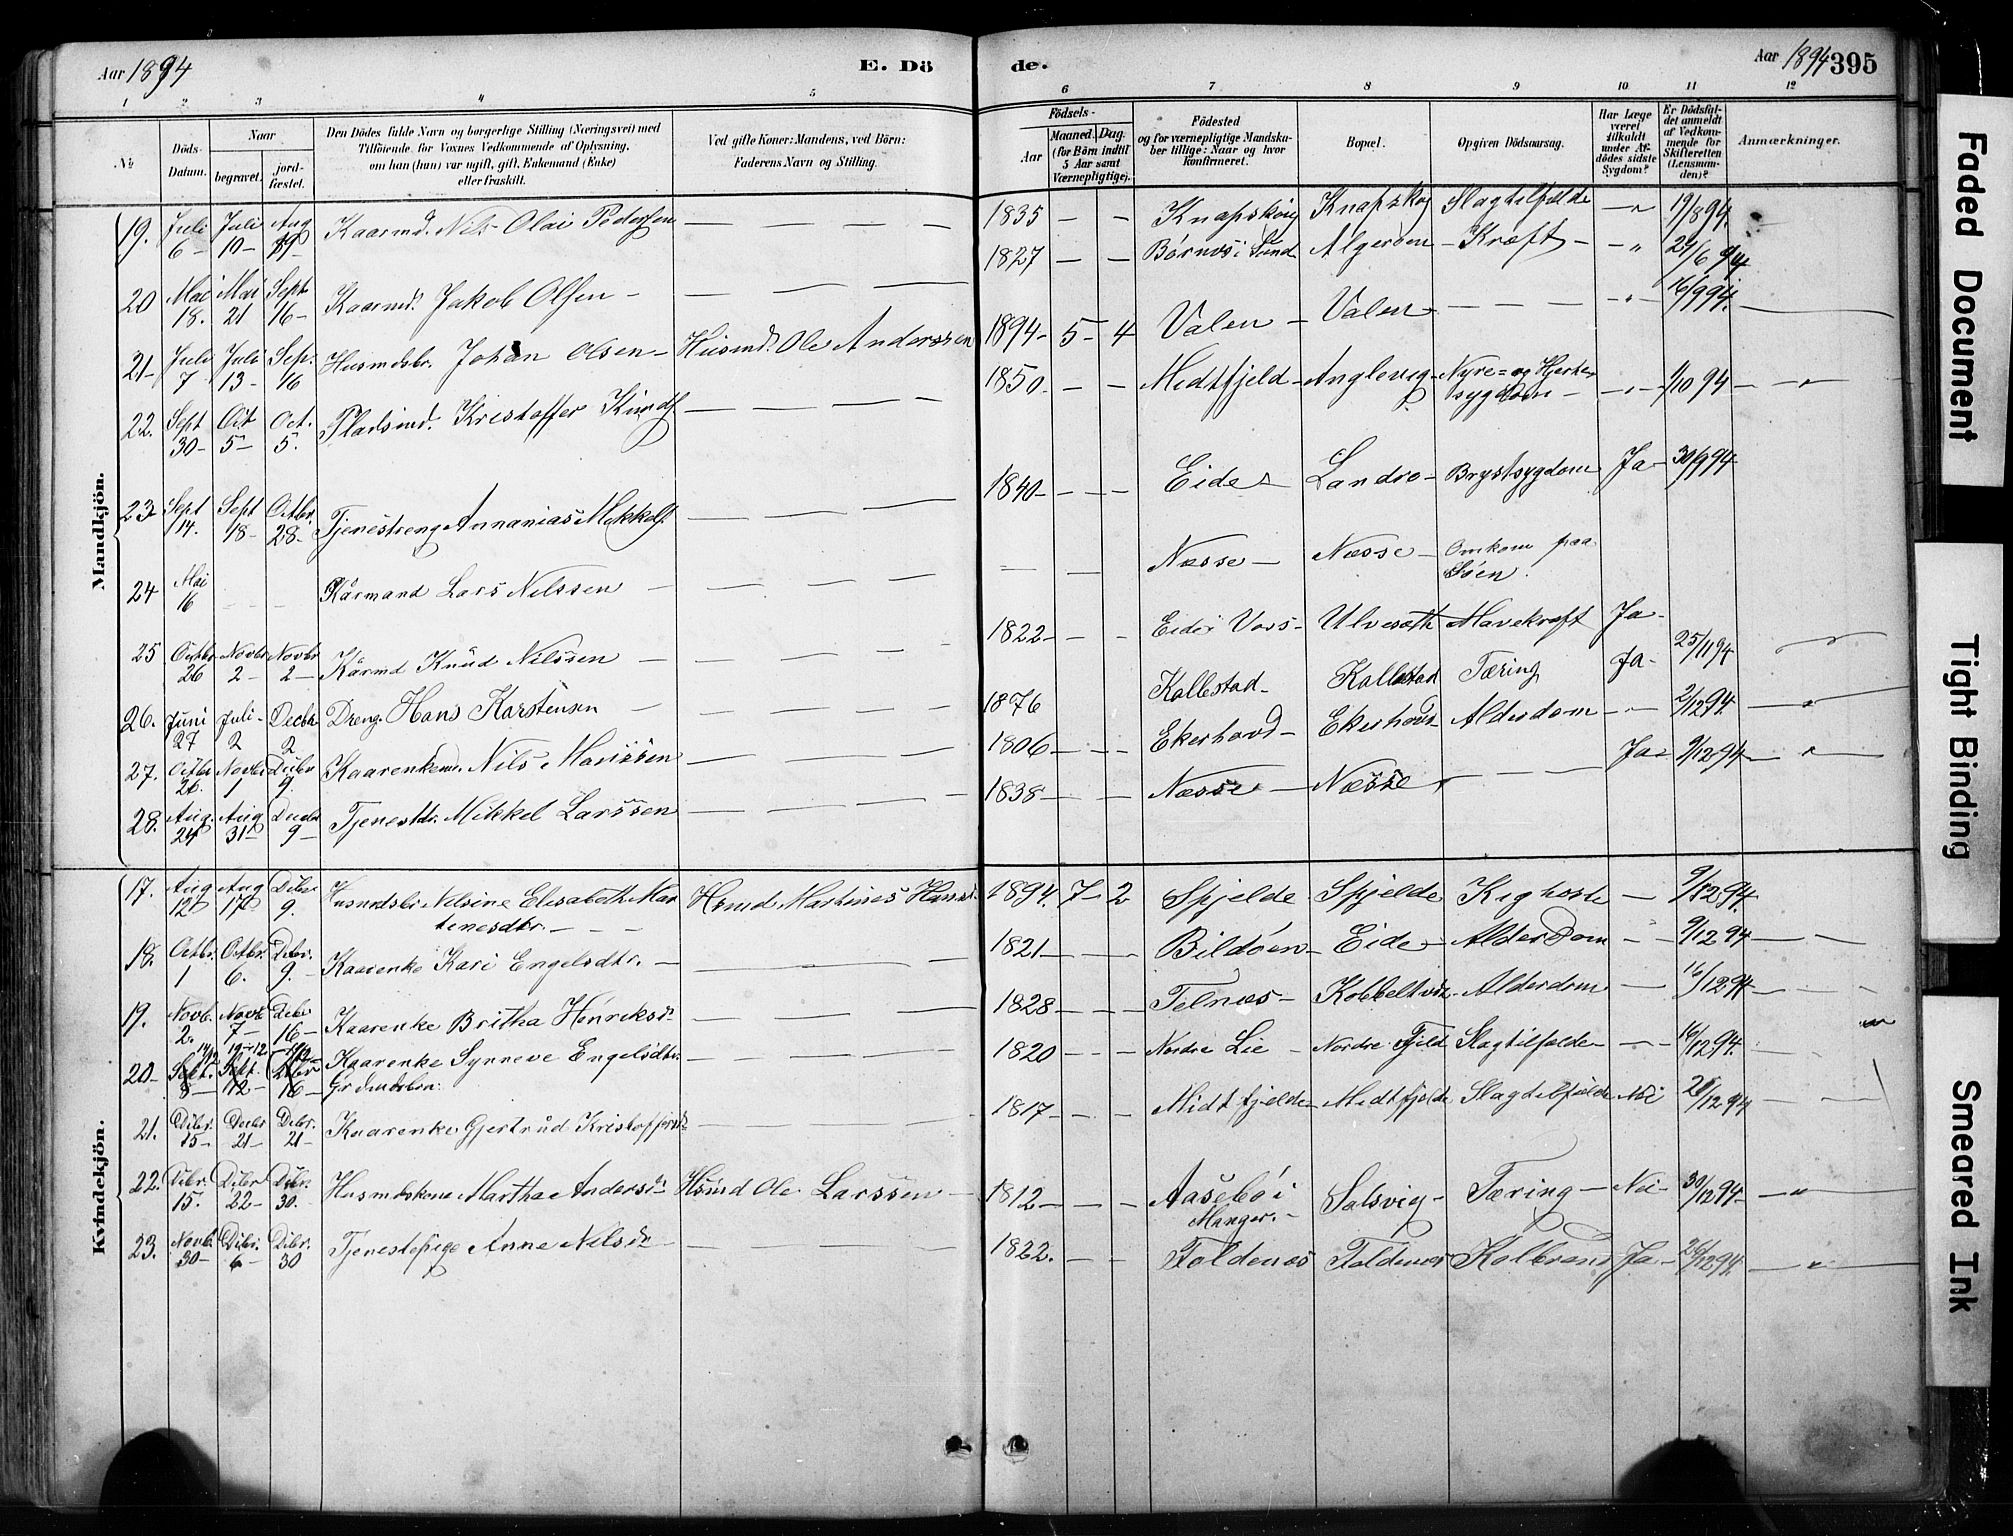 Aar 1894 E. Dö de. Aar 1894 395
1 2 3 4 5 6 7 8 9 10 11 12
No. Döds-Datum. Naar begravet. jordfæstet. Den Dödes fulde Navn og borgerlige Stilling (Næringsvei) med Tilföiende for Voxnes Vedkommende af Oplysning, om han (hun) var ugift, gift, Enkemand (Enke) eller fraskilt. Ved gifte Koner: Mandens, ved Börn: Faderens Navn og Stilling. Födsels- Aar Maaned. Dag. (for Börn indtil 5 Aar samt Værnepligtige). Födested og for værnepligtige Mandskaber tillige: Naar og hvor konfirmeret. Bopæl. Opgiven Dödsaarsag. Har Læge været tilkaldt under Afdödes sidste Sygdom? Er Dödsfaldet anmeldt af Vedkommende for Skifteretten (Lensmanden)? Anmærkninger.
Mandkjön.
19. Juli 6 Juli 10 Aug 19 Kaarmd. Nils Olai Pedersen 1835 Knapskog Knapskog Slagtilfælde 19/8 94.
20 Mai 18. Mai 21 Sept 16 Kaarmd. Jakob Olsen 1827 Börnes i Sund Algeröen Kræft 29/6 94
21 Juli 7 Juli 13 Sep. 16 Husmdsbr. Johan Olsen Husmd. Ole Anderssen 1894 5 4 Valen Valen 16/9 94.
22. Sept 30 Oct 5 Oct. 5. Pladsmd. Kristoffer Knuds 1850 Midtfjeld Anglevig Nyre= og Hjertesygdom 1/10 94
23 Sept 14. Sept 18 Octbr. 28 Tjenestreng Annanias Mikkels. 1840 Eide Landro Brystsygdom Ja 30/9 94
24 Mai 16 Kårmand Lars Nilssen Næsse Næsse Omkom paa Söen.
25 Octbr 26 Novbr 2 Novbr 2 Kårmd Knud Nilssen 1822 Eide i Voss Ulveseth Mavekræft Ja
26. Juni 27 Juli 2 Decbr 2 Dreng Hans Karstensen 1876 Kallestad Kallestad Tæring Ja 25/11 94
27. Octbr 26 Novbr 1 Dcbr 9. Kaarenkemd. Nils Marissen 1806 Ekerhovd Ekerhovd Alderdom 2/12 94.
28. Aug. 24 Aug 31 Decbr 9 Tjenestdr. Mikkel Larssen 1838 Næsse Næsse Ja 9/12 94
Kvindekjön.
17. Aug 12 Aug 17 Dcbr 9. Husmdsb. Nilsine Elisabeth Martinesdtr. Hsmd Martines Hans. 1894. 7 2 Spjelde Spjelde Kighoste 9/12 94.
18. Octbr. 1 Octbr. 6. Dcbr. 9. Kaarenke Kari Engelsdtr. 1821 Bildöen Eide Alderdom 9/12 94
19. Novb. 2. Novb 7 Dcbr 16 Kaarenke Britha Henriksdr 1828 Telnæs Alderdom 16/12 94
20 Sept. 8 Sept 12 Dcbr 16 Kaarenke Synneve Engelsdtr. 1820 Nordre Lie Nordre Fjeld Slagtilfælde 16/12 94.
21. Dcbr. 15 Decbr 21 Dcbr. 21 Kaarenke Gjertrud Kristoffersd. 1817 Midtfjelde Midtfjelde Slagtilfælde Nei 21/12 94
22. Dcbr. 15. Dcbr 22 Dcbr 30. Husmdskone Martha Andersdr Hsmd Ole Larssen 1812 Aasebö i Manger. Solsvig Tæring Nei 30/12 94
23. Novb. 30 Dcbr. 6 Dcbr. 30 Tjenestepige Anne Nilsdr 1822. Foldenæs Foldenæs Kolbrand Ja 26/12 94.
Faded Document
Tight Binding
Smeared Ink